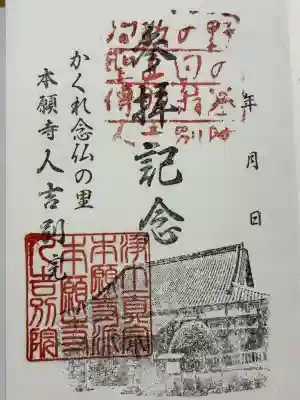 年 月 日
参拝記念
かくれ念仏の里
本願寺人吉別院
浄土真宗
本願寺派
本願寺
人吉別院